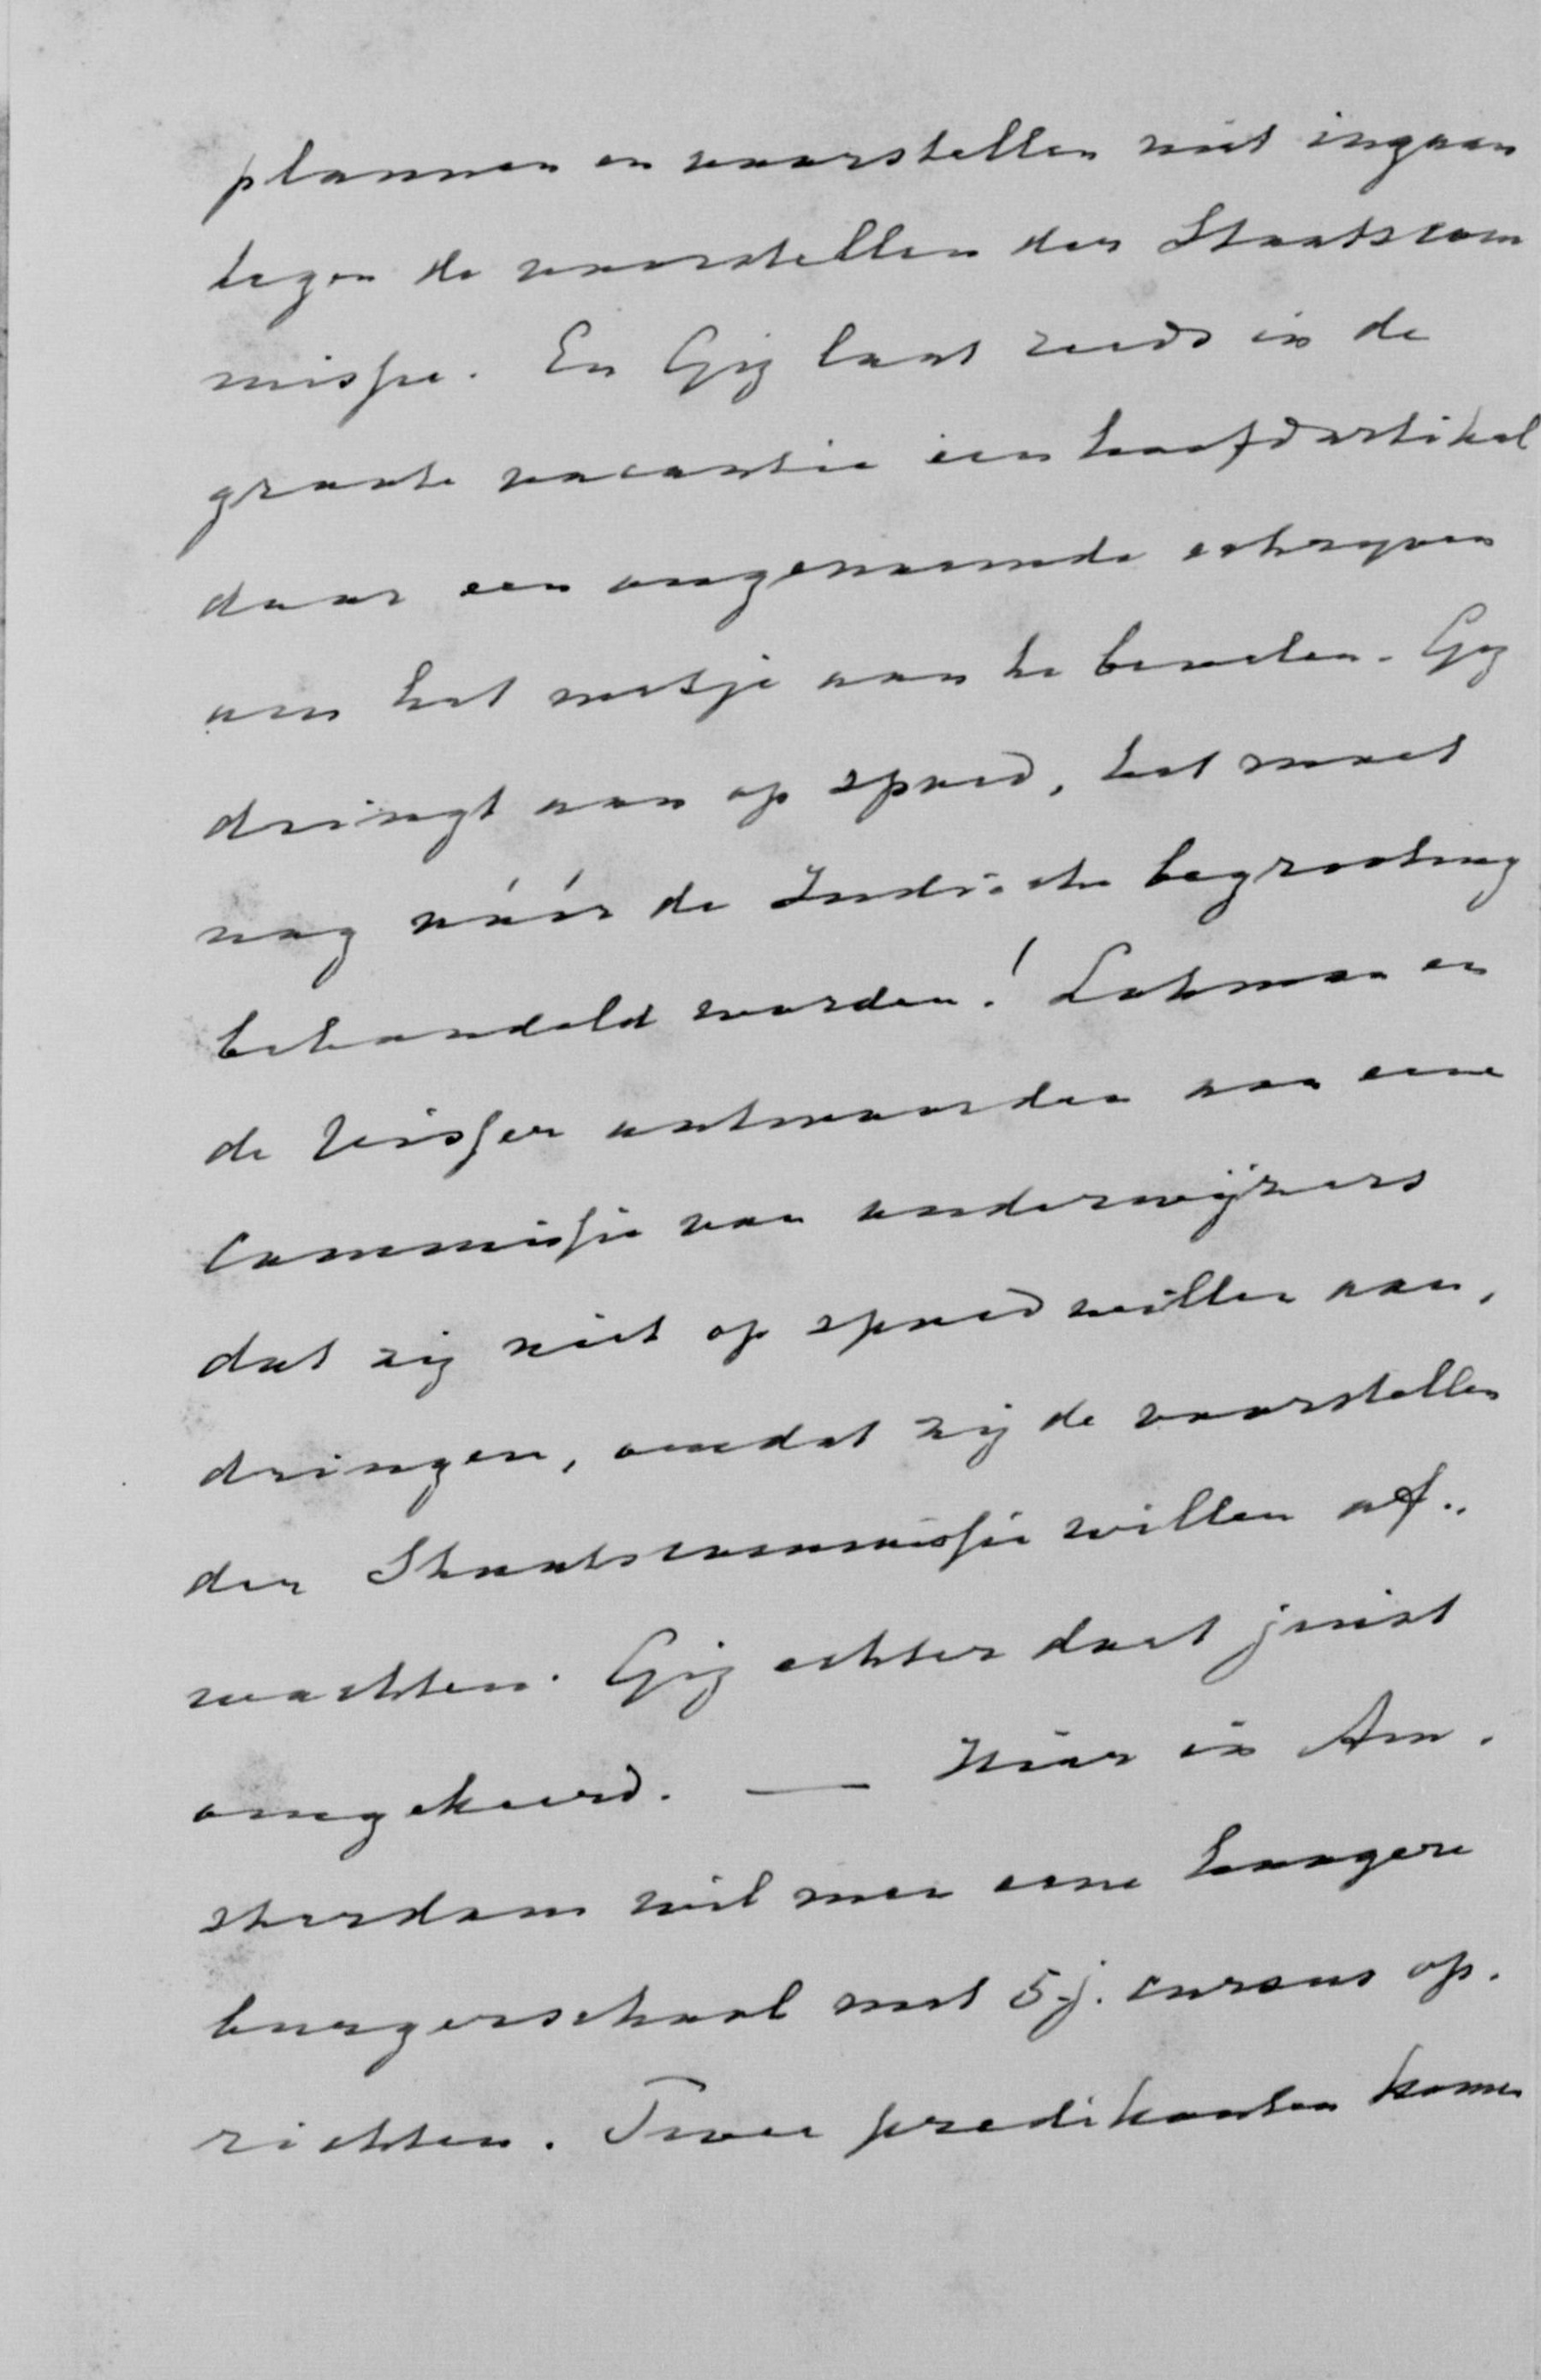 plannen en voorstellen niet ingaan
tegen de voorstellen der Staatscom
missie. En Gij laat reeds in de
groote vacantie een hoofdartikel
door een ongenoemde schryven
om het motje aan te bevelen. Gij
dringt aan op spoed, het moet
nog vóór de Indische begrooting
behandeld worden! Lohman en
de Visser antwoorden aan eene
Commissie van onderwijzers
dat zij niet op spoed willen aan,
dringen, omdat zij de voorstellen
der Staatscommissie willen af..
wachten. Gij echter doet juist
omgekeerd. — Hier in Am.
sterdam wil men eene hoogere
burgerschool met 5 j. cursus op.
richten. Twee predikanten komen